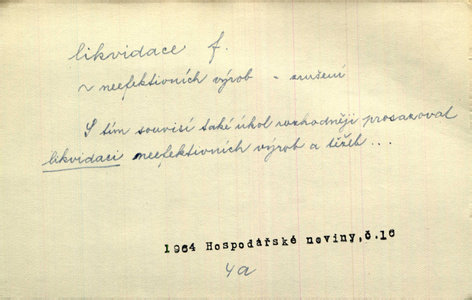 likvidace f.
~ neefektivních výrob - zrušení
S tím souvisí také úkol rozhodněji prosazovat
likvidaci neefektivních výrob a těžeb...
1964 Hospodářské noviny,č.16
4a